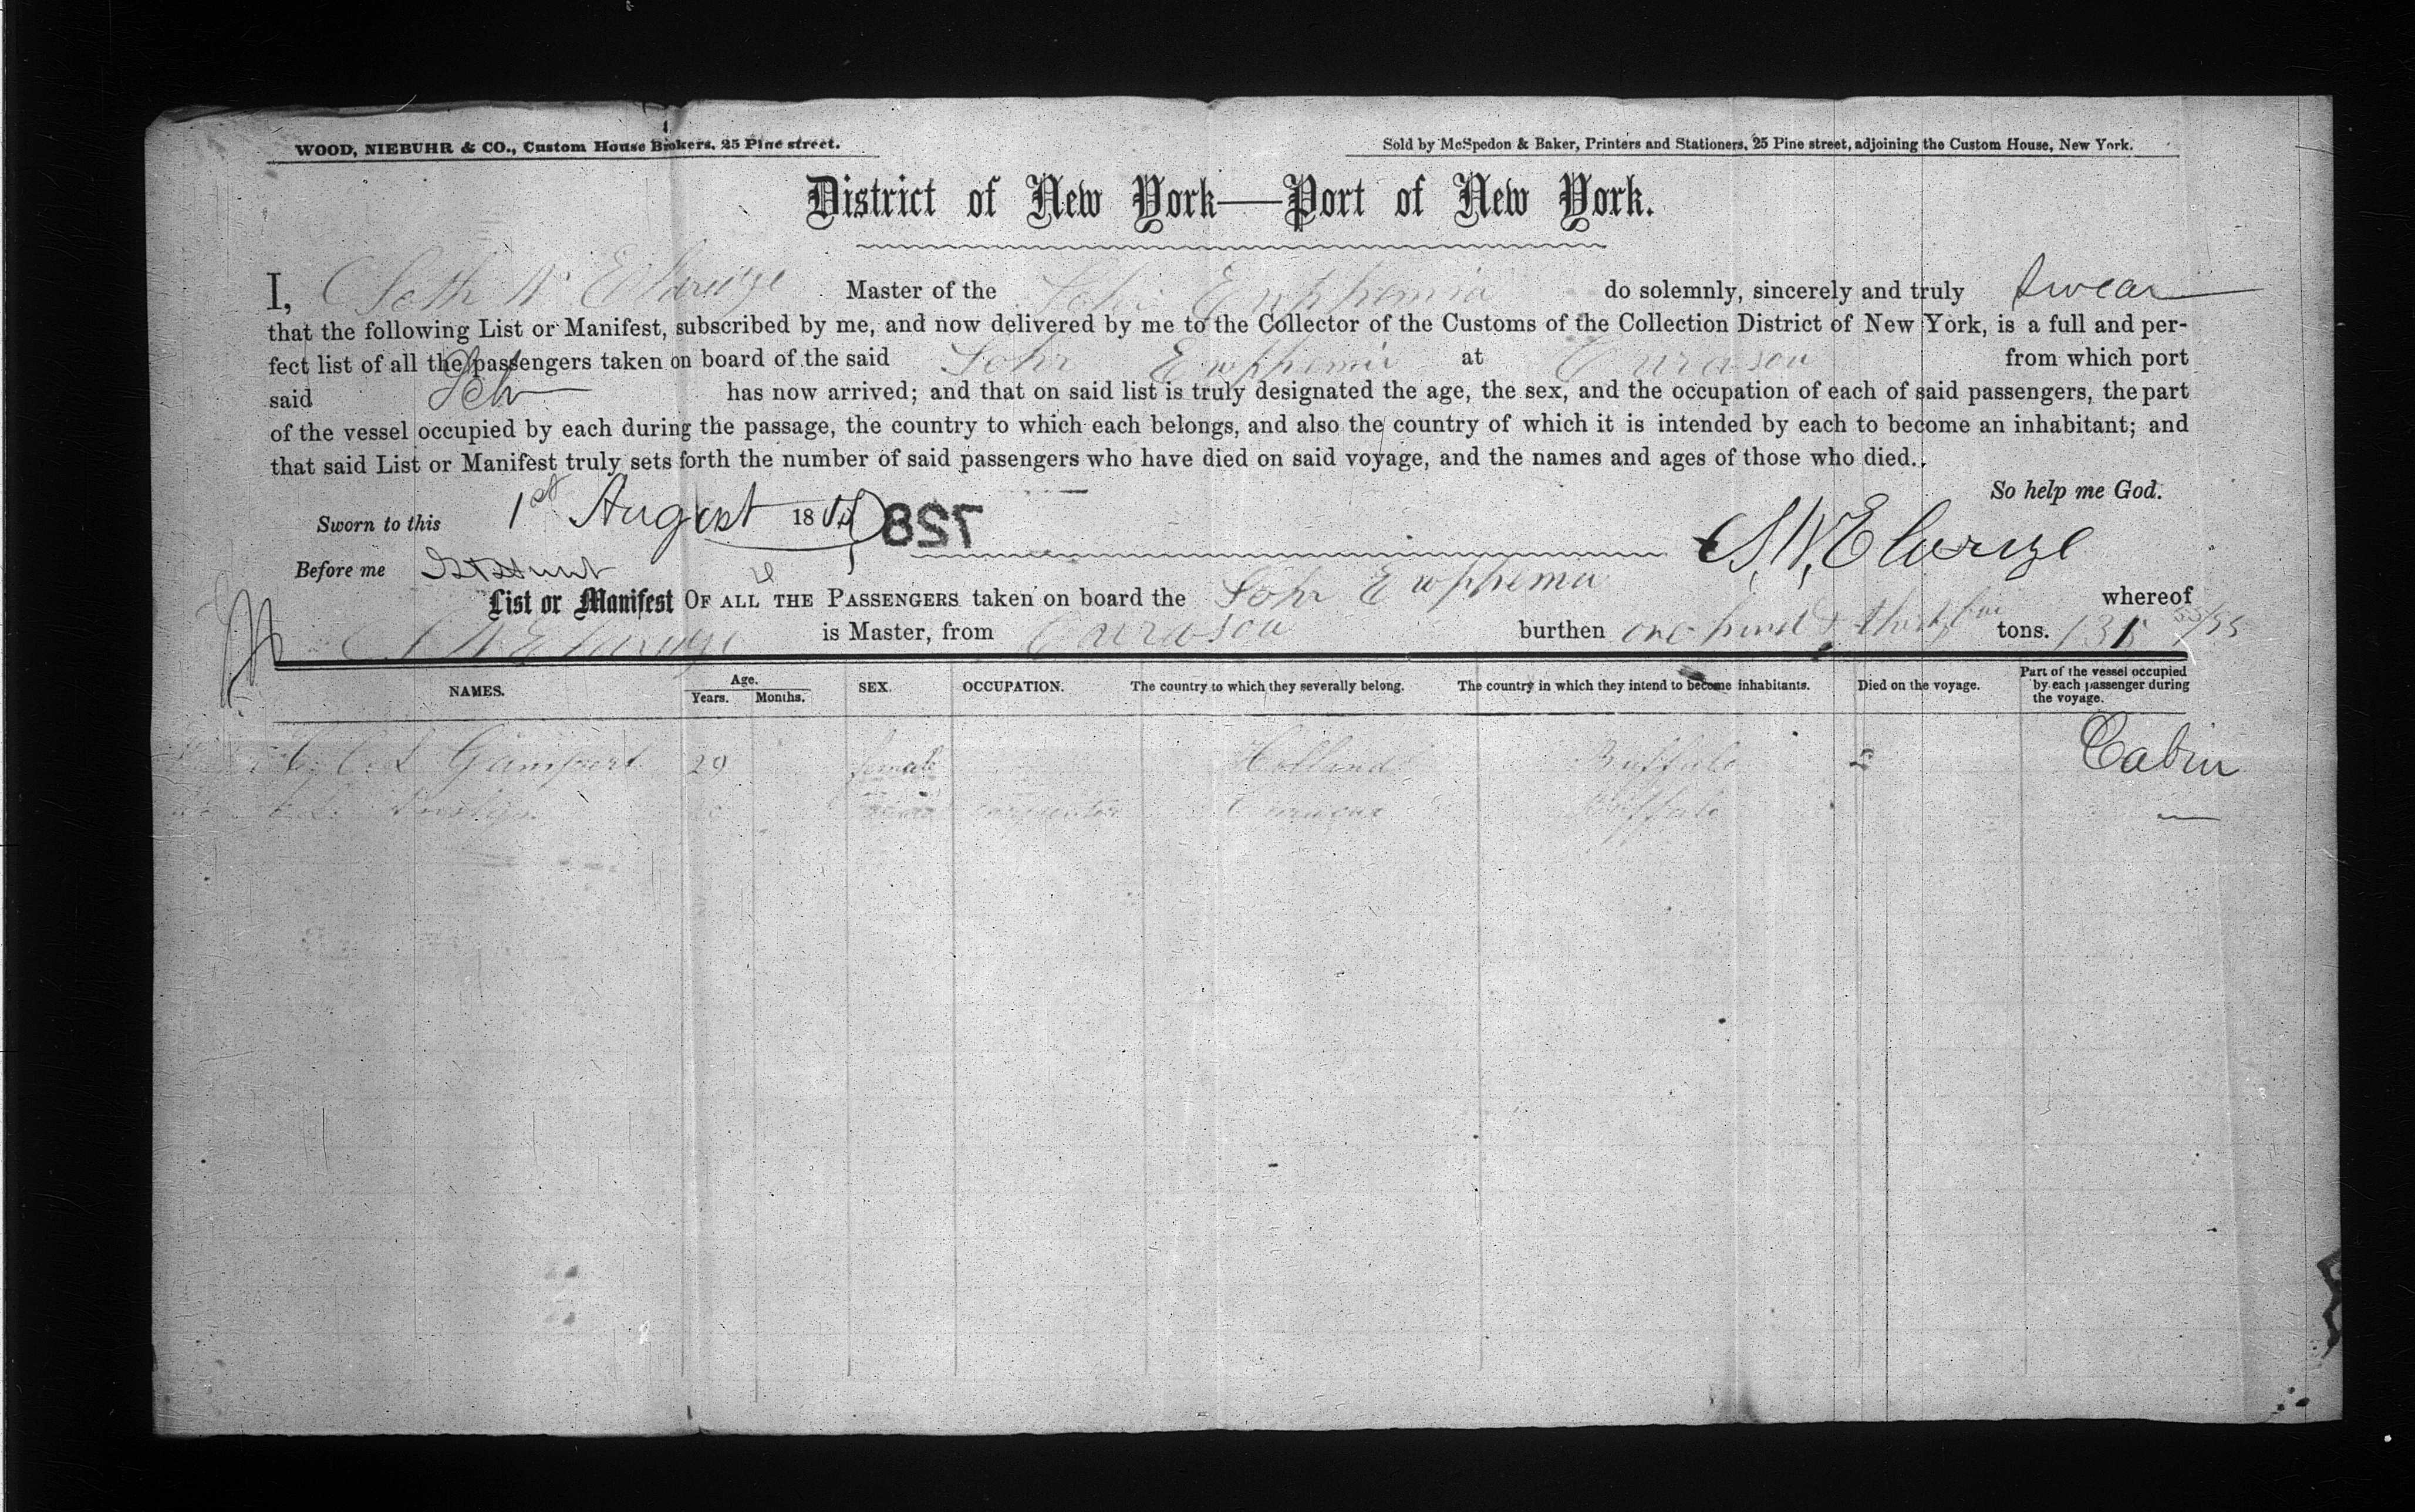 WOOD, NIEBUHR & CO., Custom House Brokers, 25 Pine street.
Sold by McSpedon & Baker, Printers and Stationers, 25 Pine street, adjoining the Custom House, New York.
District of New York—Port of New York.
I, Seth W Master of the Schr Euphemia do solemnly, sincerely and truly swear
that the following List or Manifest, subscribed by me, and now delivered by me to the Collector of the Customs of the Collection District of New York, is a full and per-
fect list of all the passengers taken on board of the said Schr Euphemia at Curasou from which port
said Schr has now arrived; and that on said list is truly designated the age, the sex, and the occupation of each of said passengers, the part
of the vessel occupied by each during the passage, the country to which each belongs, and also the country of which it is intended by each to become an inhabitant; and
that said List or Manifest truly sets forth the number of said passengers who have died on said voyage, and the names and ages of those who died.
So help me God.
Sworn to this 1st August 18 728 S. W.
Before me
List or Manifest OF ALL THE PASSENGERS taken on board the Schr Euphemia whereof
S W is Master, from Curasou burthen one hund & thirty five tons.
NAMES. Age. Years. Months. SEX. OCCUPATION. The country to which they severally belong. The country in which they intend to become inhabitants. Died on the voyage. Part of the vessel occupied by each passenger during the voyage.
29 female Holland Buffalo Cabin
carpenter Buffalo